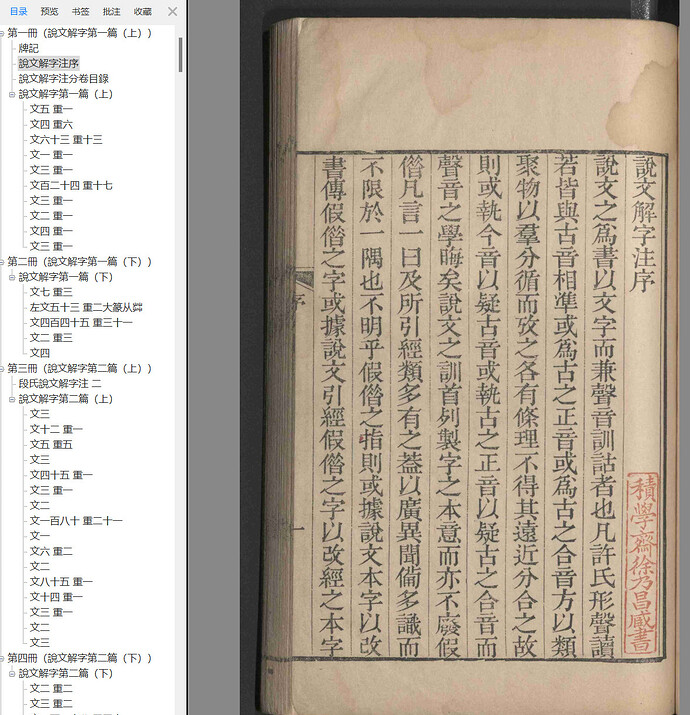 目录 预览 书签 批注 收藏
第一冊（說文解字第一篇（上））
牌記
說文解字注序
說文解字注分卷目錄
說文解字第一篇（上）
文五 重一
文四 重六
文六十三 重十三
文一 重一
文三 重一
文百二十四 重十七
文三 重一
文二 重一
文四 重一
文三 重一
第二冊（說文解字第一篇（下））
說文解字第一篇（下）
文七 重三
左文五十三 重二大篆从茻
文四百四十五 重三十一
文二 重三
文四
第三冊（說文解字第二篇（上））
段氏說文解字注 二
說文解字第二篇（上）
文三
文十二 重一
文五 重五
文三
文四十五 重一
文三 重一
文二
文一百八十 重二十一
文一
文六 重二
文二
文八十五 重一
文十四 重一
文三 重一
文二
文三
第四冊（說文解字第二篇（下））
說文解字第二篇（下）
文二 重二
文三 重二
說文解字注序
積學齋徐乃昌臧書
說文之爲書以文字而兼聲音訓詁者也凡許氏形聲讀
若皆與古音相準或爲古之正音或爲古之合音方以類
聚物以羣分循而攷之各有條理不得其遠近分合之故
則或執今音以疑古音或執古之正音以疑古之合音而
聲音之學晦矣說文之訓首列製字之本意而亦不廢假
僭凡言一曰及所引經類多有之葢以廣異聞僃多識而
不限於一隅也不明乎假僭之指則或據說文本字以改
書傳假僭之字或據說文引經假僭之字以改經之本字
序
一